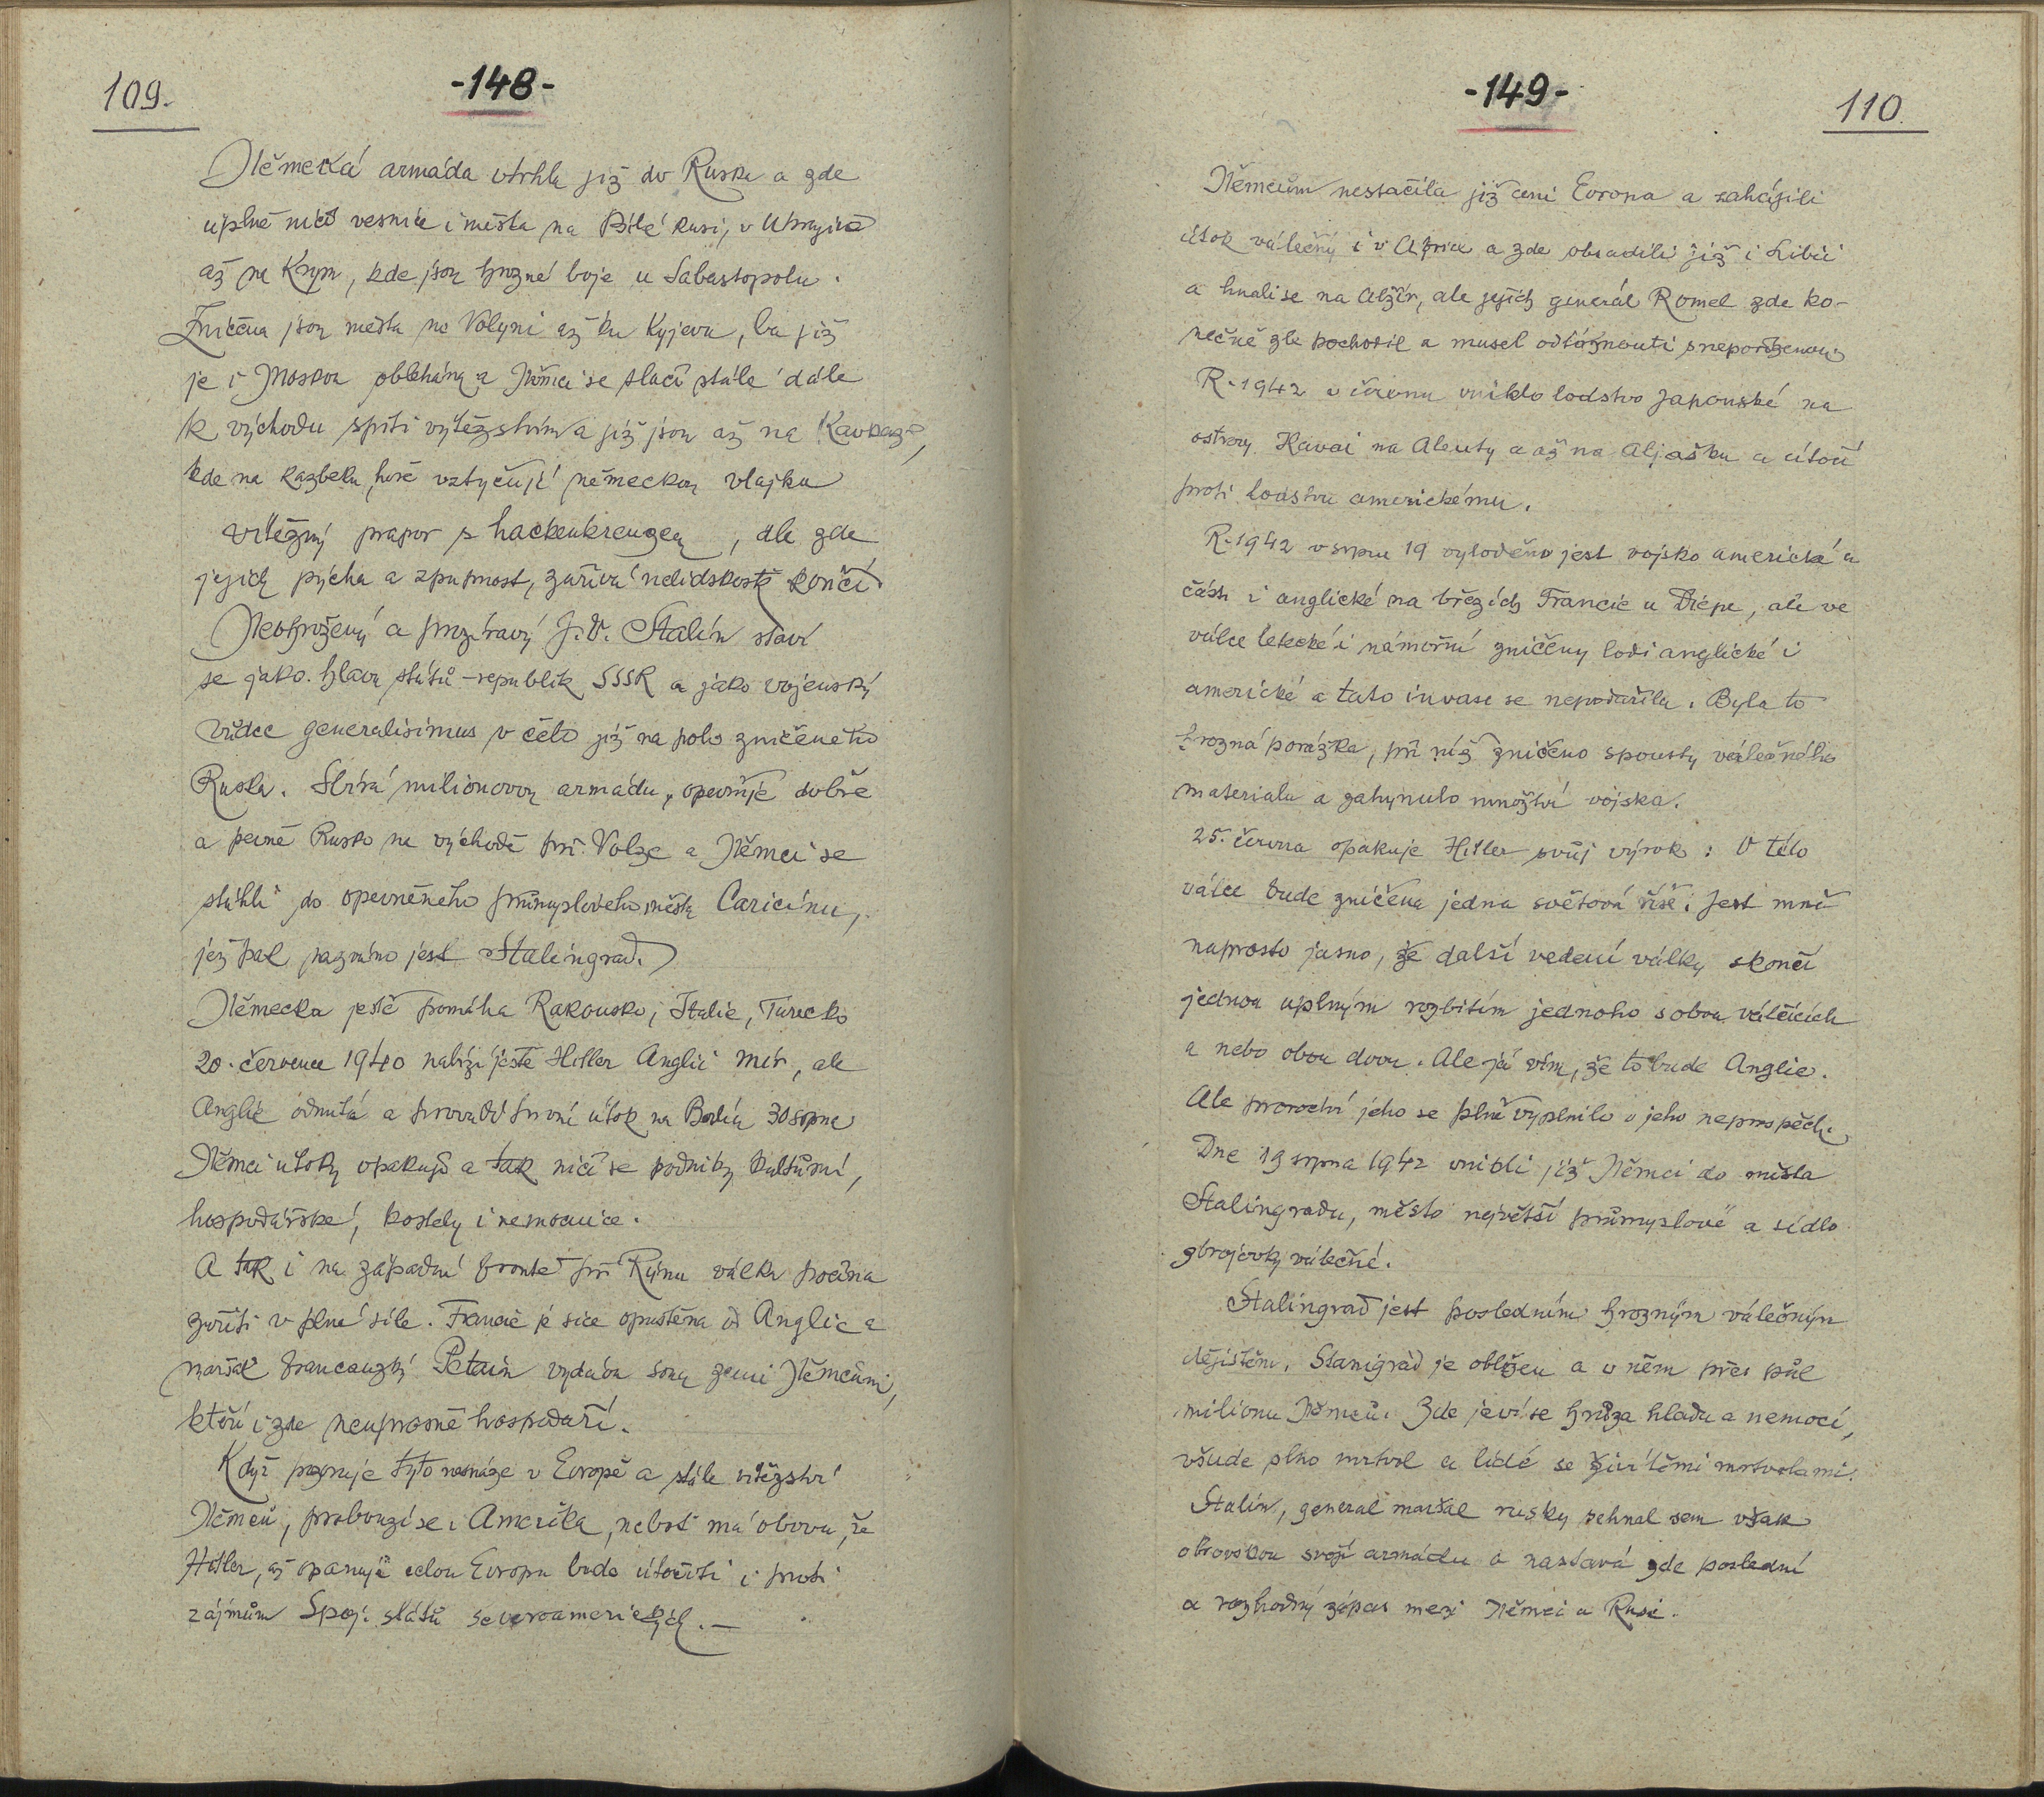 109.
-148-
Německá armáda vtrhla již do Ruska a zde
úplně ničí vesnice i města na Bílé Rusi, v Ukrajině
až na Krym, kde jsou hrozné boje u Sabastopolu.
Zničena jsou města na Volyni až ku Kyjevu, ba již
je i Moskva obléhána a Němci se tlačí stále dále
k východu spiti vítězstvím a již jsou až na Kavkaze,
kde na Kazbeku hoře vztyčují německou vlajku
vítězný prapor s hackenkreuzem, ale zde
jejich pýcha a zpupnost, zuřivá nelidskost končí
Neohrožený a prozíravý J. V. Stalin staví
se jako hlava států-republik SSSR a jako vojenský
vůdce generalisimus v čelo již na polo zničeného
Ruska. Sbírá milionovou armádu, opevňuje dobře
a pevně Rusko na východě při Volze a Němci se
stáhli do opevněného průmyslového města Caricinu,
jež pak nazváno jest Stalingrad.
Německu ještě pomáhá Rakousko, Italie, Turecko
20. července 1940 nabízí ještě Hitler Anglii mír, ale
Anglie odmítá a provádí první útok na Berlín 30 srpna
Němci útoky opakují a tak ničí se podniky kulturní,
hospodářské, kostely i nemocnice.
A tak i na západní frontě při Rýnu válka počíná
zuřiti v plné síle. Francie je sice opuštěna od Anglie a
maršál francouzský Petain vydává svou zemi Němcům,
kteří i zde neuprosně hospodaří.
Když pozoruje tyto nesnáze v Evropě a stále vítězství
Němců, probouzí se i Amerika, neboť má obavu, že
Hitler, až opanuje celou Evropu bude útočiti i proti
zájmům Spoj. států severoamerických.—
-149-
110.
Němcům nestačila již ani Evropa a zahájili
útok válečný i v Africe a zde obsadili již i Libii
a hnali se na Alžír, ale jejich generál Romel zde ko-
nečně zle pochodil a musel odtáhnouti s nepořízenou
R. 1942 v červnu vniklo loďstvo japonské na
ostrovy Havai na Aleuty a až na Aljašku a útočí
proti loďstvu americkému.
R. 1942 v srpnu 19 vyloděno jest vojsko americké a
část i anglické na březích Francie u Diepe, ale ve
válce letecké i námořní zničeny lodi anglické i
americké a tato invase se nepodařila. Byla to
hrozná porážka, při níž zničeno spousty válečného
materialu a zahynulo množství vojska.
25. června opakuje Hitler svůj výrok: V této
válce bude zničena jedna světová říše. Jest mně
naprosto jasno, že další vedení války skončí
jednou uplným rozbitím jednoho z obou válčících
a nebo obou dvou. Ale já vím, že to bude Anglie.
Ale proroctví jeho se plně vyplnilo v jeho neprospěch.
Dne 19 srpna 1942 vnikli již Němci do města
Stalingradu, město největší průmyslové a sídlo
zbrojovky válečné.
Stalingrad jest posledním hrozným válečným
dějištěm. Stanigrad je obležen a v něm přes půl
milionu Němců. Zde jeví se hrůza hladu a nemocí,
všude plno mrtvol a lidé se živí těmi mrtvolami.
Stalin, general maršal rusky sehnal sem však
obrovskou svoji armádu a nastává zde poslední
a rozhodný zápas mezi Němci a Rusi.